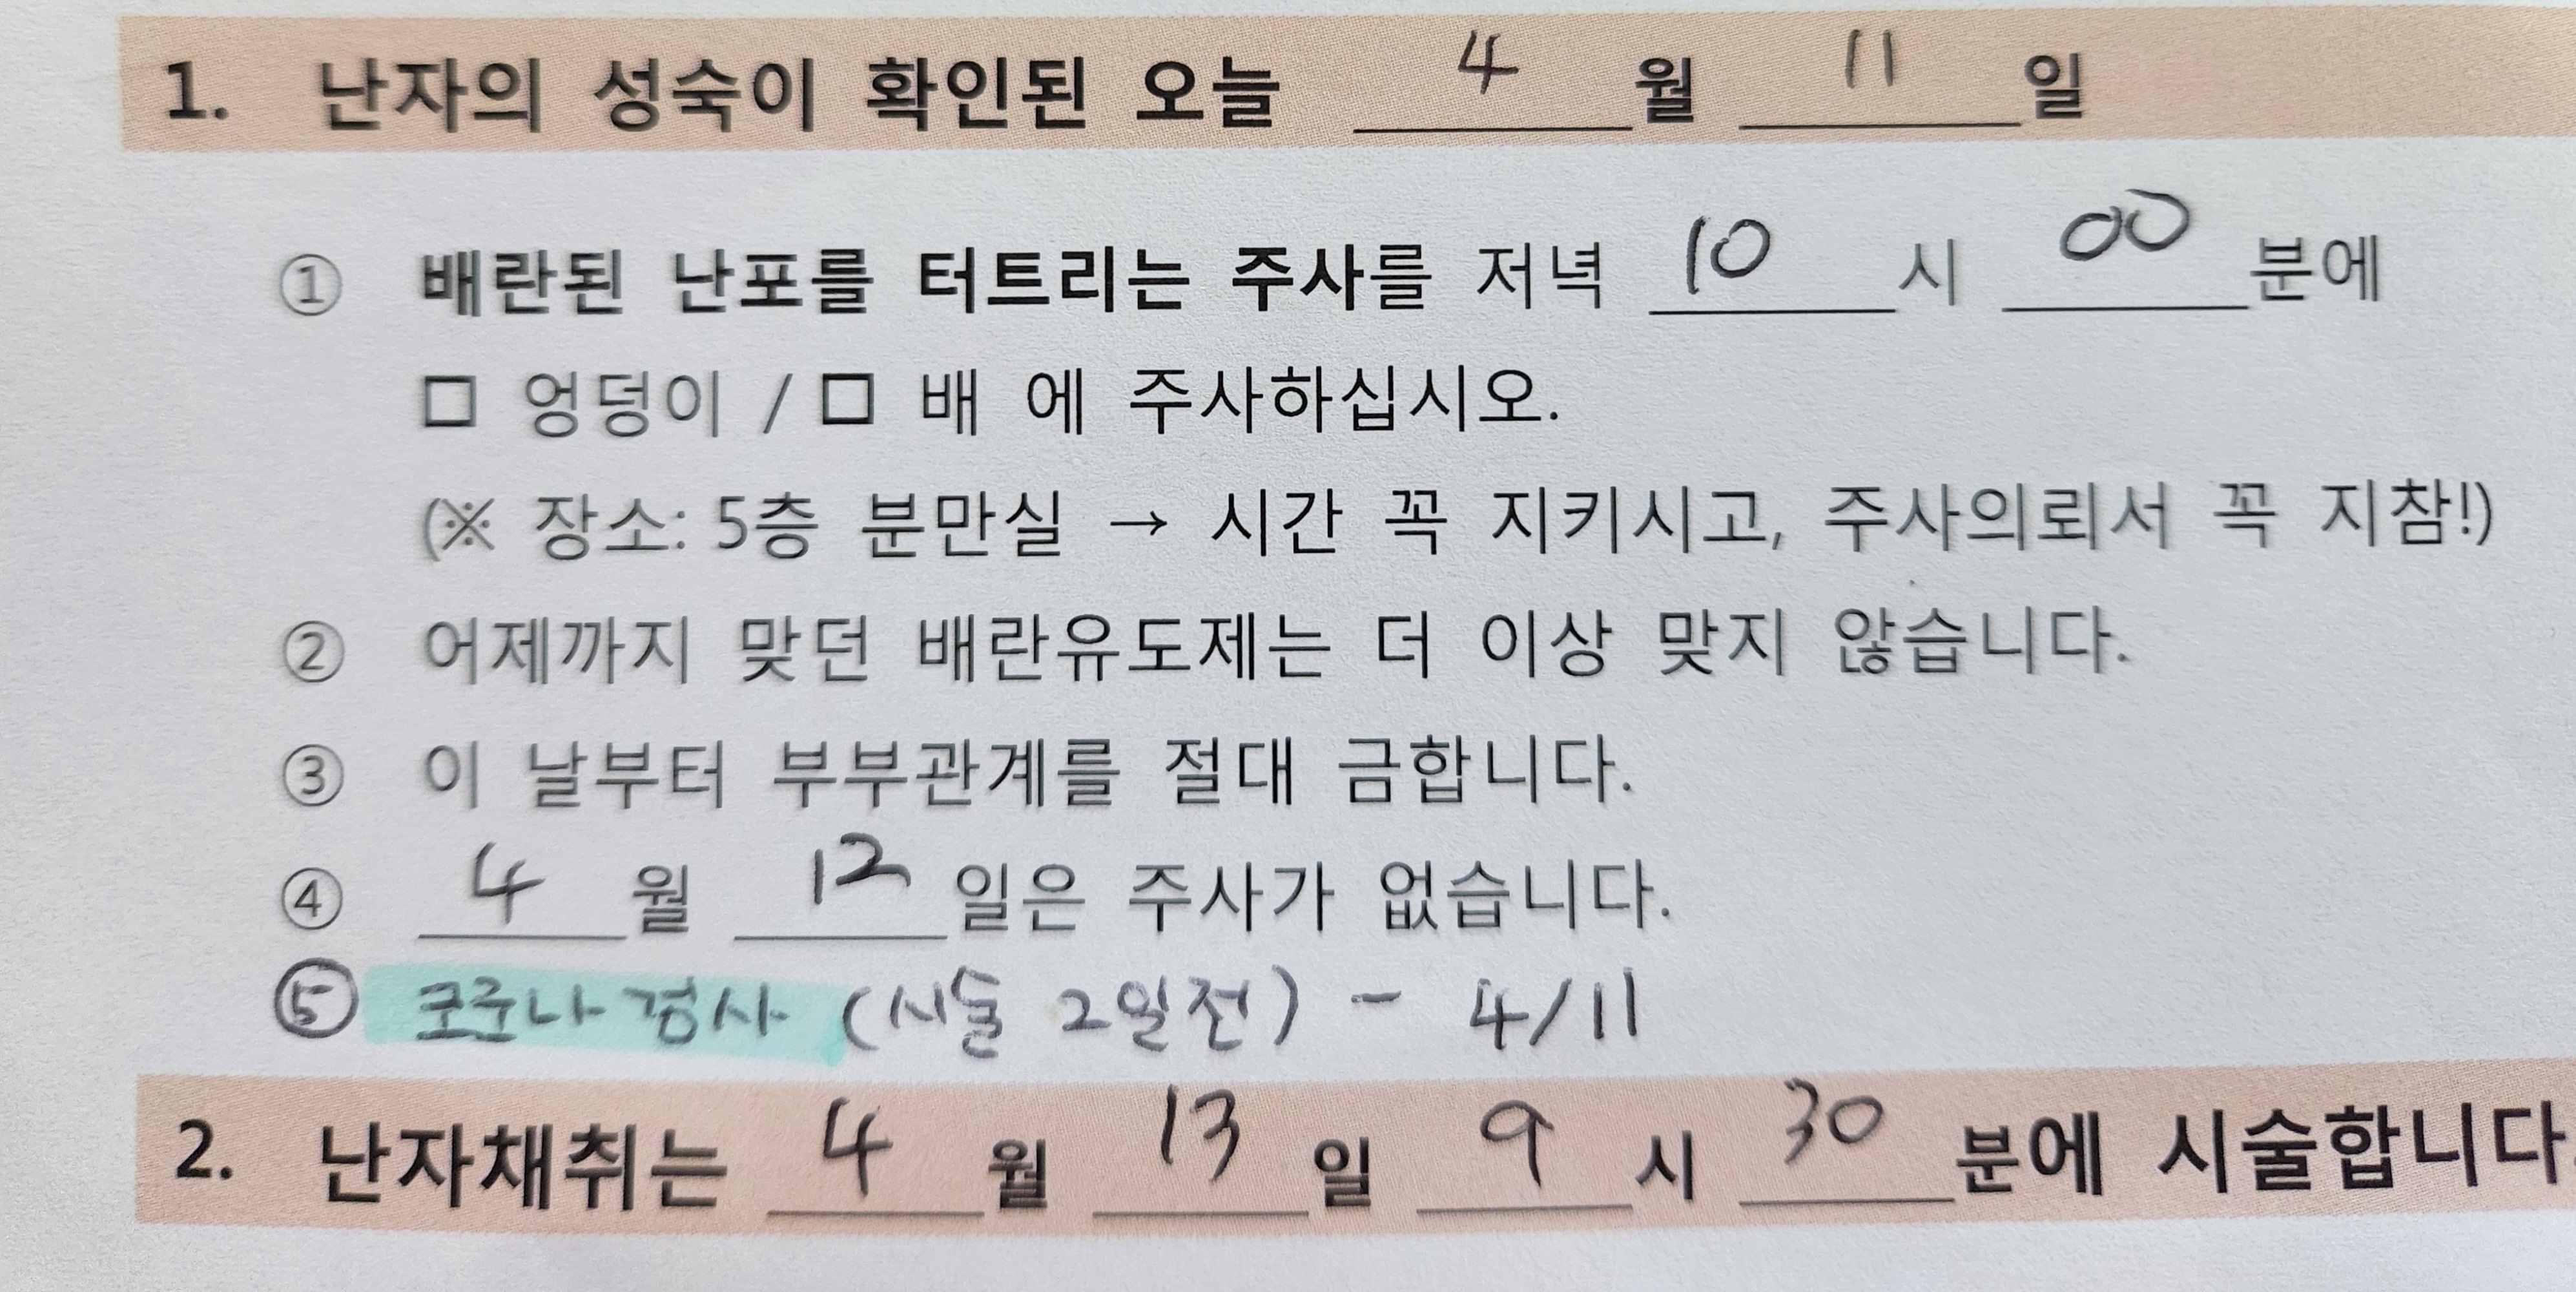 1. 난자의 성숙이 확인된 오늘 4 월 11 일
① 배란된 난포를 터트리는 주사를 저녁 10 시 00 분에
□ 엉덩이 / □ 배 에 주사하십시오.
(※ 장소: 5층 분만실 → 시간 꼭 지키시고, 주사의뢰서 꼭 지참!)
② 어제까지 맞던 배란유도제는 더 이상 맞지 않습니다.
③ 이 날부터 부부관계를 절대 금합니다.
④ 4 월 12 일은 주사가 없습니다.
⑤ 코로나 검사 (시술 2일전) - 4/11
2. 난자채취는 4 월 13 일 9 시 30 분에 시술합니다.